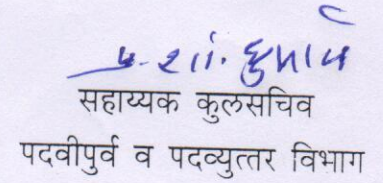 सहाय्यक कुलसचिव
पदवीपुर्व व पदव्युत्तर विभाग